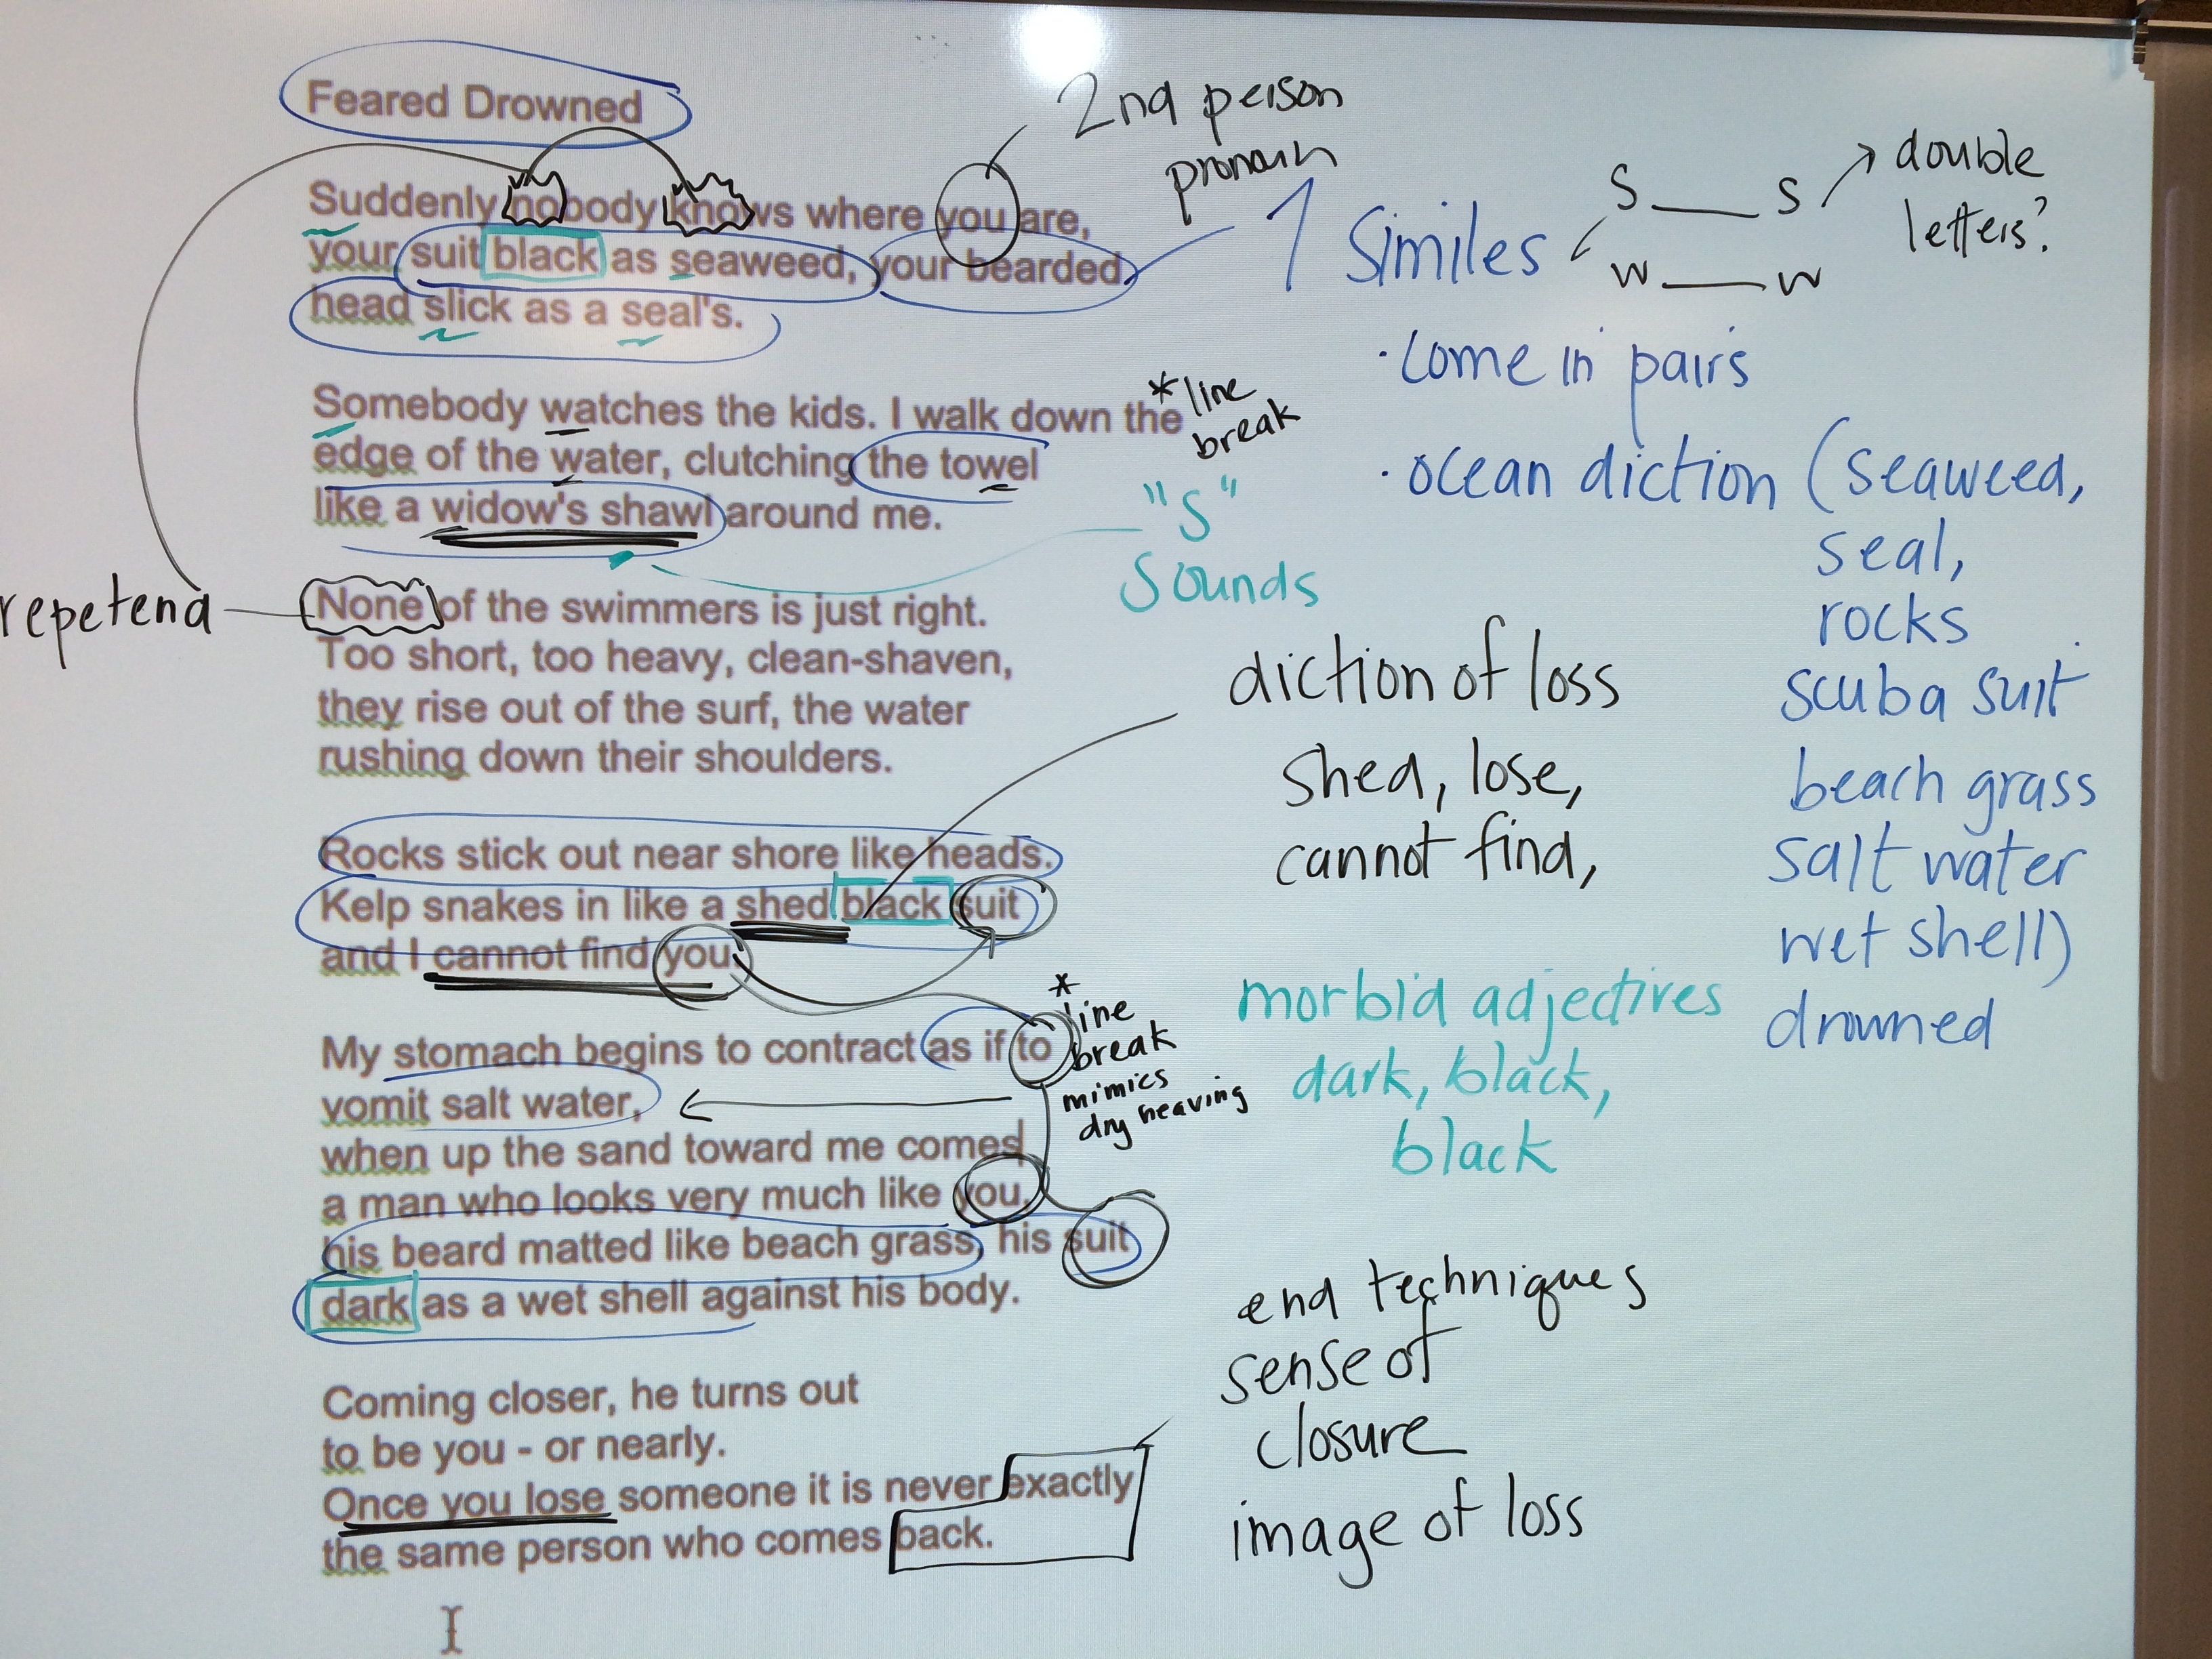 Feared Drowned
Suddenly nobody knows where you are,
your suit black as seaweed, your bearded
head slick as a seal's.
Somebody watches the kids. I walk down the
edge of the water, clutching the towel
like a widow's shawl around me.
None of the swimmers is just right.
Too short, too heavy, clean-shaven,
they rise out of the surf, the water
rushing down their shoulders.
Rocks stick out near shore like heads.
Kelp snakes in like a shed black suit
and I cannot find you.
My stomach begins to contract as if to
vomit salt water,
when up the sand toward me comes
a man who looks very much like you,
his beard matted like beach grass, his suit
dark as a wet shell against his body.
Coming closer, he turns out
to be you - or nearly.
Once you lose someone it is never exactly
the same person who comes back.
repetend
2nd person
pronoun
* line
break
"S"
Sounds
*
line
break
mimics
dry heaving
Similes
S S
W W
double
letters?
· Come in pairs
· ocean diction (seaweed,
seal,
rocks
scuba suit
beach grass
salt water
wet shell)
drowned
diction of loss
shed, lose,
cannot find,
morbid adjectives
dark, black,
black
end techniques
sense of
closure
image of loss